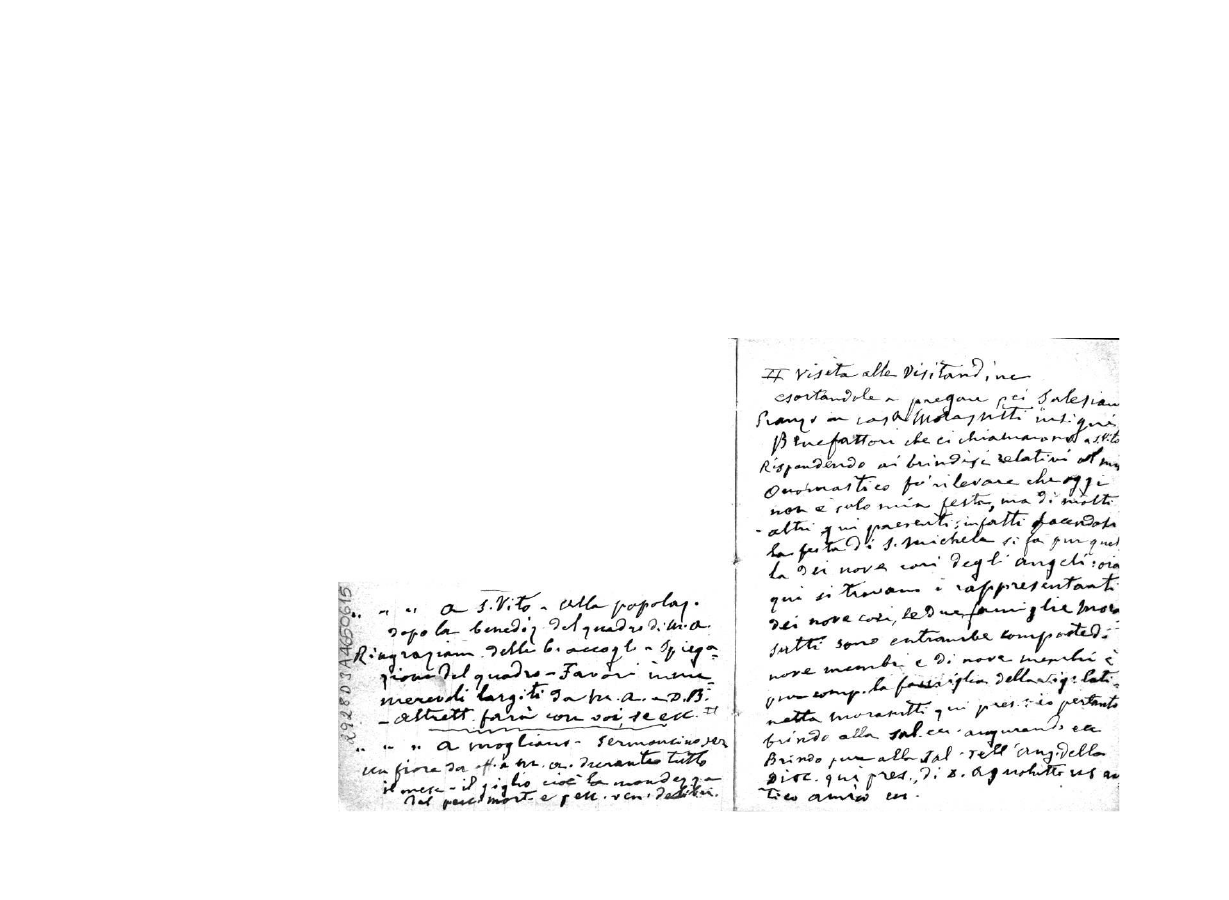 " " " a S. Vito - alla popolaz.
dopo la benediz. del quadro di M. A.
Ringraziam. della b. accogl. - Spiega-
zione del quadro - Favori innu-
merevoli largiti da M. A. a D. B.
- altrett. farà con voi, se ecc. II
" " " a Mogliano - Sermoncino
un fiore da M. A. durante tutto
il mese - il giglio cioè la mondezza
dal pecc. mort. e pecc. ven. delib.
2928D3A4650615
II Visita alle Visitandine
esortandole a pregare pei Salesiani
Pranzo in casa Morassutti insigni
Benefattori che ci chiamarono a S. Vito
Rispondendo ai brindisi relativi al mio
Onomastico fo' rilevare che oggi
non è solo mia festa, ma di molti
altri qui presenti: infatti facendosi
la festa di S. Michele si fa pur quel
la dei nove cori degli angeli: ora
qui si trovano i rappresentanti
dei nove cori, le due famiglie Moras
sutti sono entrambe composte di
nove membri e di nove membri è
pur comp. la famiglia della sig.
netta Morassutti qui pres.: io pertanto
brindo alla sal. ecc. augurando ecc
Brindo pure alla sal. dell'ang. della
Dioc. qui pres., di D. Agnoletto us an
tico amico ecc.